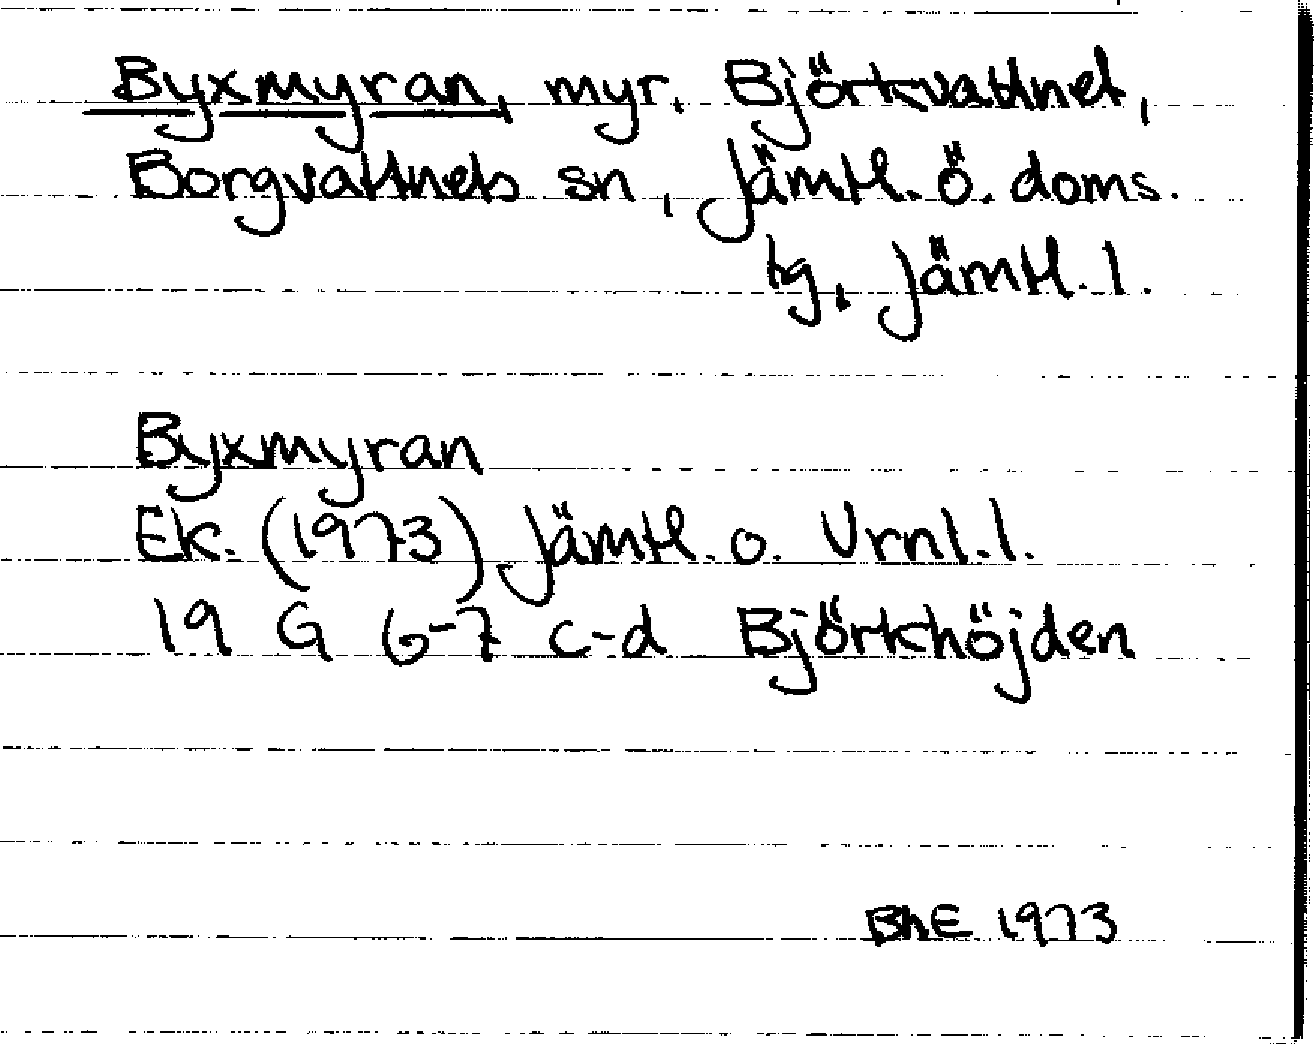 Byxmyran, myr. Björkvattnet,
Borgvattnets sn, Jämtl. ö. doms.
tg, Jämtl. l.
Byxmyran
Ek. (1973) Jämtl. o. Vrnl. l.
19 G 6-7 c-d Björkhöjden
BhE 1973